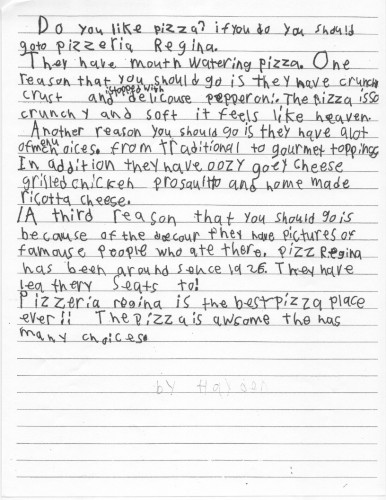 Do you like pizza? if you do you should
goto pizzeria Regina.
They have mouth watering pizza. One
reason that you should go is they have crunchy
crust and stopped with delicouse pepperoni. The pizza isso
crunchy and soft it feels like heaven.
Another reason you should go is they have alot
of menu oices. from traditional to gourmet toppings
In addition they have oozy goey cheese
grilled chicken prosaultto and home made
ricotta cheese.
A third reason that you should go is
because of the decour they have pictures of
famouse people who ate there. pizz Regina
has been around sence 1926. They have
leathery seats to!
Pizzeria regina is the best pizza place
ever!! The pizza is awsome the has
many choices.